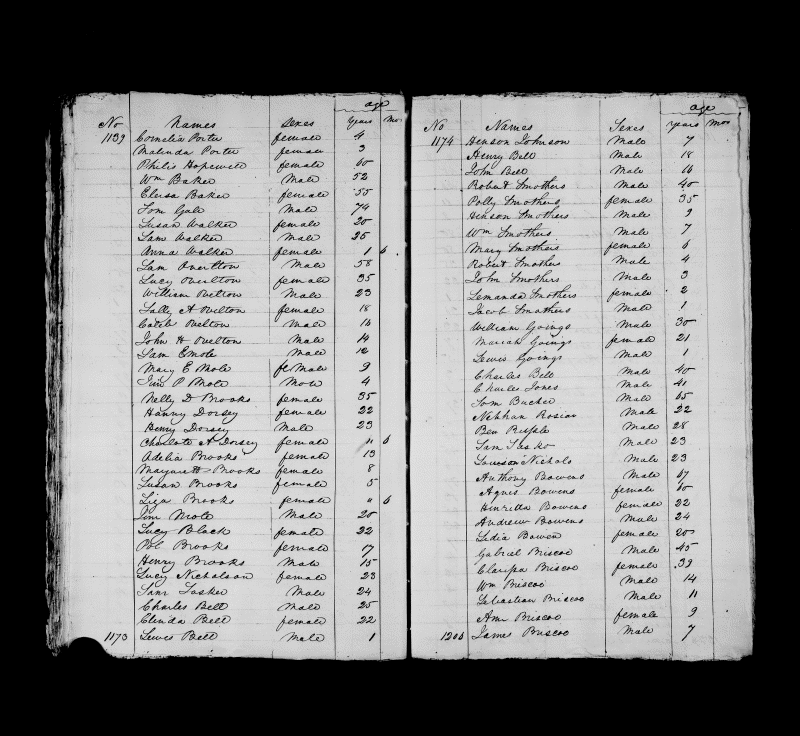 age
No Names Sexes Years Mo
1139 Cornelia Porter female 4
Malinda Porter female 3
Philis Hopewell female 60
Wm Baker Male 52
Elusa Baker female 55
Tom Gale Male 74
Susan Walker female 20
Sam Walker Male 25
Anna Walker female 1 6
Sam Overtton Male 58
Lucy Overlton female 35
William Ovelton Male 23
Sally A Ovelton female 18
Caleb Ovelton Male 16
John H Ovelton Male 14
Sam Emole Male 12
Mary E Mole feMale 9
Jim P Mole Mole 4
Nelly D Brooks female 35
Hanny Dorsey female 22
Henry Dorsey Male 23
Charlote A Dorsey female 11 6
Adelia Brooks female 13
Margarett Brooks female 8
Susan Brooks female 5
Liza Brooks female " 6
Jim Mole Male 20
Lucy Black female 22
Pol Brooks female 17
Henry Brooks Male 15
Lucy Nicholson female 23
Sam Tasker Male 24
Charles Bell Male 25
Clinda Bell female 22
1173 Lewis Bell Male 1
age
No Names Sexes years Mos
1174 Henson Johnson Male 7
Henry Bell Male 18
John Bell Male 16
Robert Smothers Male 40
Polly Smothers female 35
Henson Smothers Male 9
Wm Smothers Male 7
Mary Smothers female 6
Robert Smothers Male 4
John Smothers Male 3
Lemanda Smothers female 2
Jacob Smothers Male 1
William Goings Male 30
Mariah Goings female 21
Lewis Goings Male 1
Charles Bell Male 40
Charles Jones Male 41
Tom Bucker Male 65
Nathan Rosier Male 22
Ben Male 28
Sam Tasko Male 23
Nichols Male 23
Anthony Bowens Male 67
Agnes Bowens female 60
Henrietta Bowens female 22
Andrew Bowens Male 24
Lidia Bowen female 20
Gabriel Briscoe Male 45
Clarissa Briscoe female 39
Wm Briscoe Male 14
Sebastian Briscoe Male 11
Ann Briscoe female 9
1208 James Briscoe Male 7